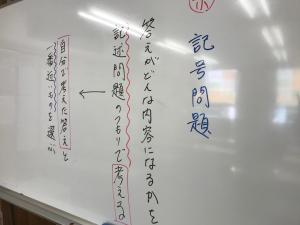 記号問題
答えがどんな内容になるかを
記述問題のつもりで考える
↓
自分で考えた答えと
一番近いものを選ぶ